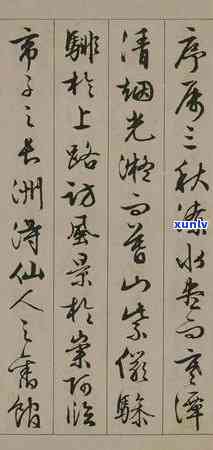 序属三秋潦水盡而寒潭
清烟光凝而暮山紫儼驂
騑於上路訪風景於崇阿臨
帝子之長洲得仙人之舊館
讯灵
xunlv